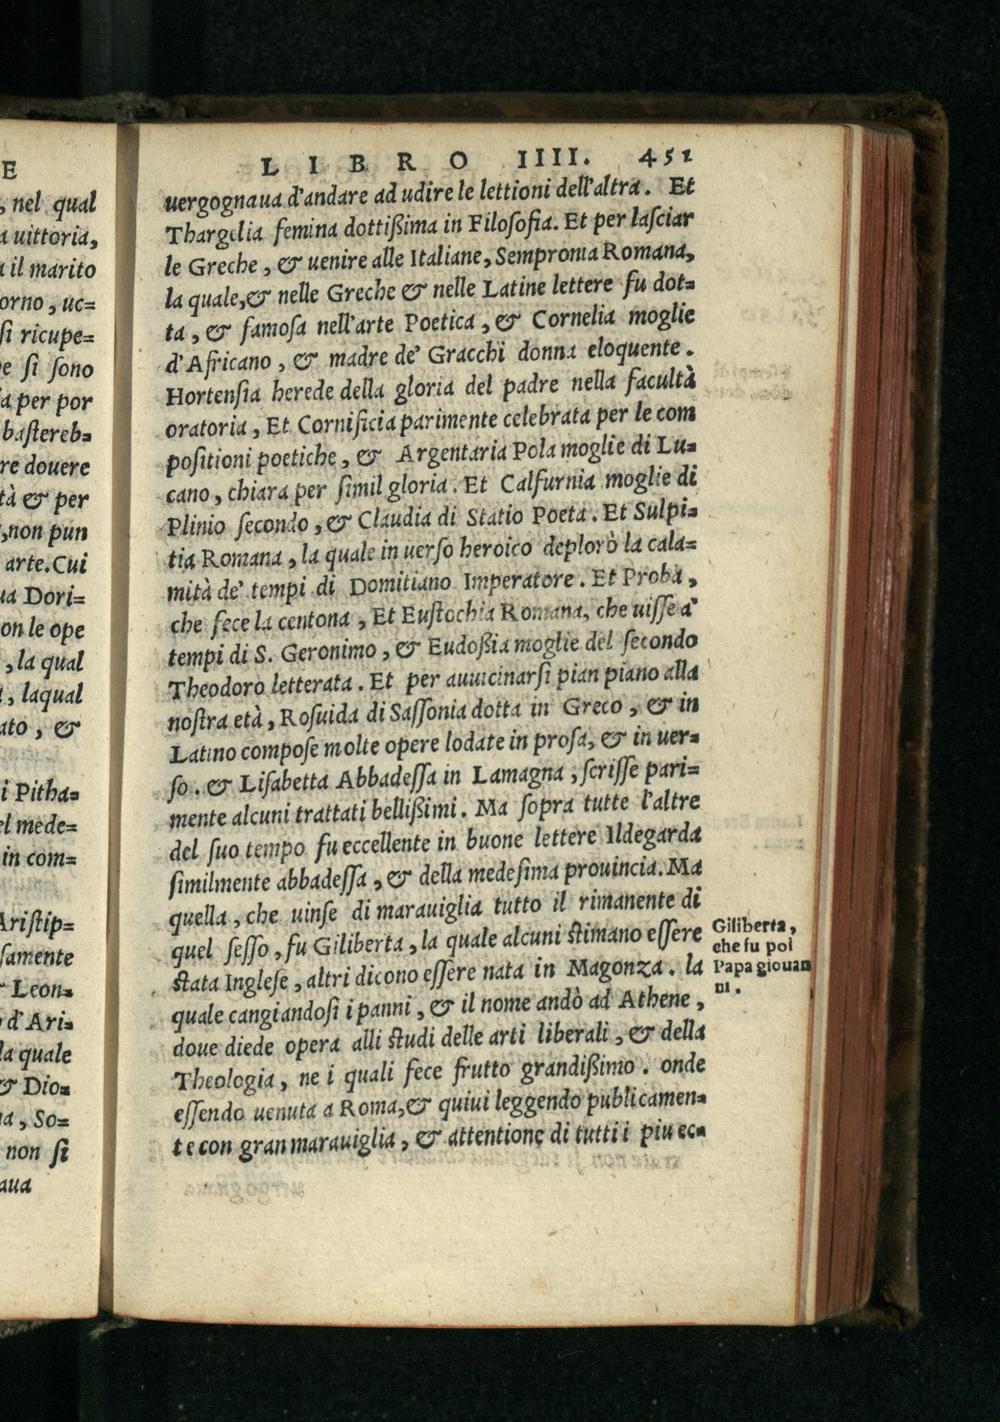 E
, nel qual
a uittoria,
a il marito
orno, uc=
ſi ricupe=
e ſi ſono
a per por
baſtereb=
re douere
tà & per
,non pun
arte. Cui
ua Dori=
on le ope
, la qual
, laqual
ato, &
i Pitha=
el mede=
in com=
Ariſtip=
ſamente
Leon=
d'Ari=
la quale
& Dio=
a, So=
non ſi
aua
LIBRO IIII. 451
uergognaua d'andare ad udire le lettioni dell'altra. Et
Thargelia femina dottißima in Filoſofia. Et per laſciar
le Greche, & uenire alle Italiane, Sempronia Romana,
la quale,& nelle Greche & nelle Latine lettere fu dot=
ta, & famoſa nell'arte Poetica, & Cornelia moglie
d'Africano, & madre de' Gracchi donna eloquente.
Hortenſia herede della gloria del padre nella facultà
oratoria, Et Cornificia parimente celebrata per le com
poſitioni poetiche, & Argentaria Pola moglie di Lu=
cano, chiara per ſimil gloria. Et Calfurnia moglie di
Plinio ſecondo, & Claudia di Statio Poeta. Et Sulpi=
tia Romana, la quale in uerſo heroico deplorò la cala=
mità de' tempi di Domitiano Imperatore. Et Proba,
che fece la centona, Et Euſtochia Romana, che uiſſe a'
tempi di S. Geronimo, & Eudoßia moglie del ſecondo
Theodoro letterata. Et per auuicinarſi pian piano alla
noſtra età, Roſuida di Saſſonia dotta in Greco, & in
Latino compoſe molte opere lodate in proſa, & in uer=
ſo. & Liſabetta Abbadeſſa in Lamagna, ſcriſſe pari=
mente alcuni trattati bellißimi. Ma ſopra tutte l'altre
del ſuo tempo fu eccellente in buone lettere Ildegarda
ſimilmente abbadeſſa, & della medeſima prouincia. Ma
quella, che uinſe di marauiglia tutto il rimanente di
quel ſeſſo, fu Giliberta, la quale alcuni ſtimano eſſere
ſtata Ingleſe, altri dicono eſſere nata in Magonza. la
quale cangiandoſi i panni, & il nome andò ad Athene,
doue diede opera alli ſtudi delle arti liberali, & della
Theologia, ne i quali fece frutto grandißimo. onde
eſſendo uenuta a Roma,& quiui leggendo publicamen=
te con gran marauiglia, & attentione di tutti i piu ec=
Giliberta,
che fu poi
Papa giouan
ni.